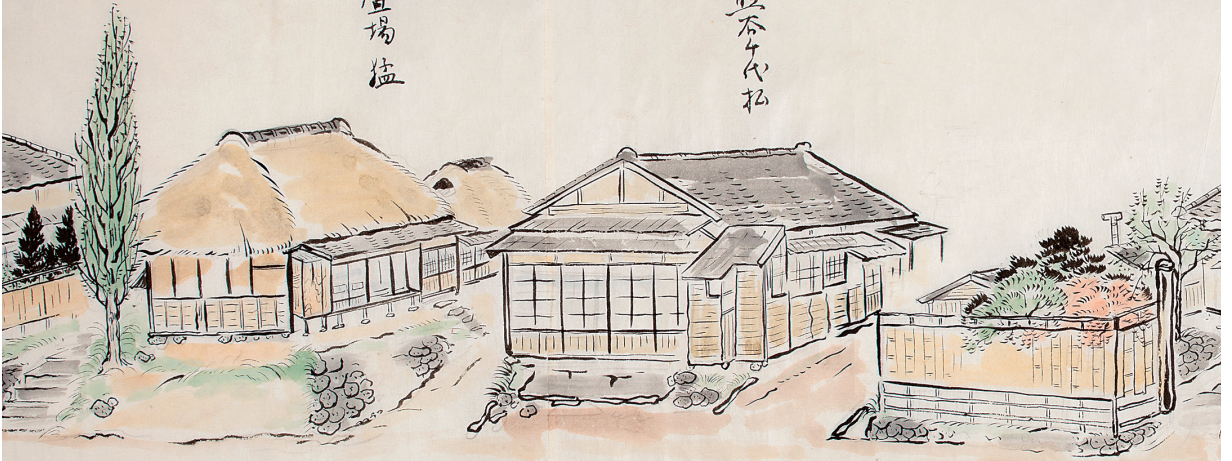 谷千代松
場 猛